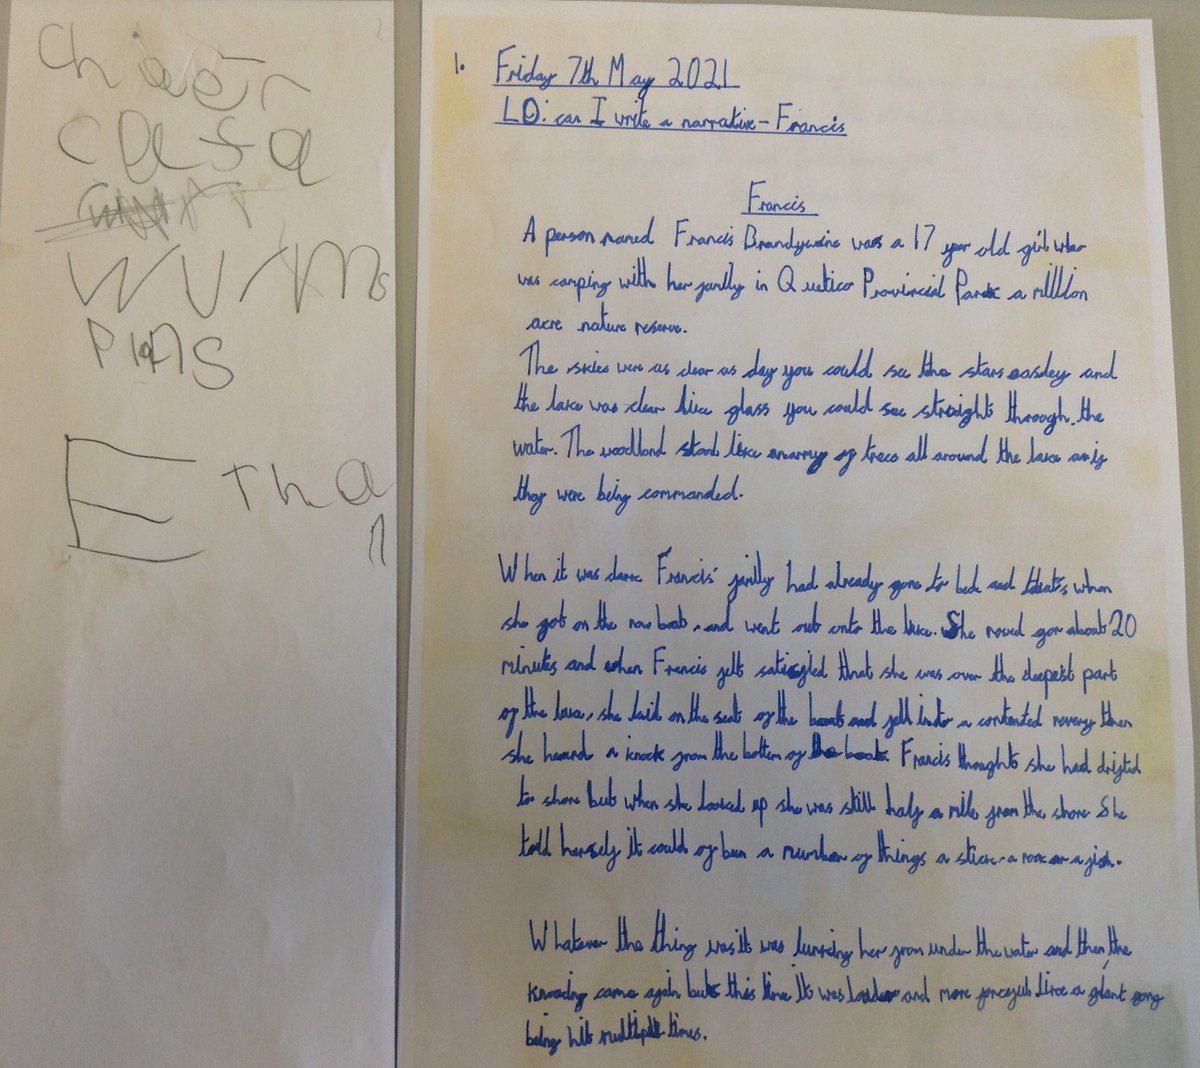 casa
wurms
Plans
Ethan
1. Friday 7th May 2021
LO: can I write a narrative - Francis
Francis
A person named Francis Brandywine was a 17 year old girl who
was camping with her family in Quetico Provincial Park a milldon
acre nature reserve.
The skies were as clear as day you could see the stars easdey and
the lake was clear like glass you could see straight through the
water. The woodland stood like anarmy of trees all around the lake as if
they were being commanded.
When it was dark Francis' family had already gone to bed and that's when
she got on the row boat, and went out onto the lake. She rowed for about 20
minutes and when Francis felt satisfied that she was over the deepest part
of the lake, she laid on the seat of the boat and fell into a contented revery then
she heard a knock from the bottom of the boat. Francis thought she had drifted
to shore but when she looked up she was still half a mile from the shore She
told herself it could of been a number of things a stick - a rock or a fish.
Whatever the thing was it was lurking her from under the water and then the
knocking came again but this time it was louder and more forceful like a giant gong
being hit multiple times.